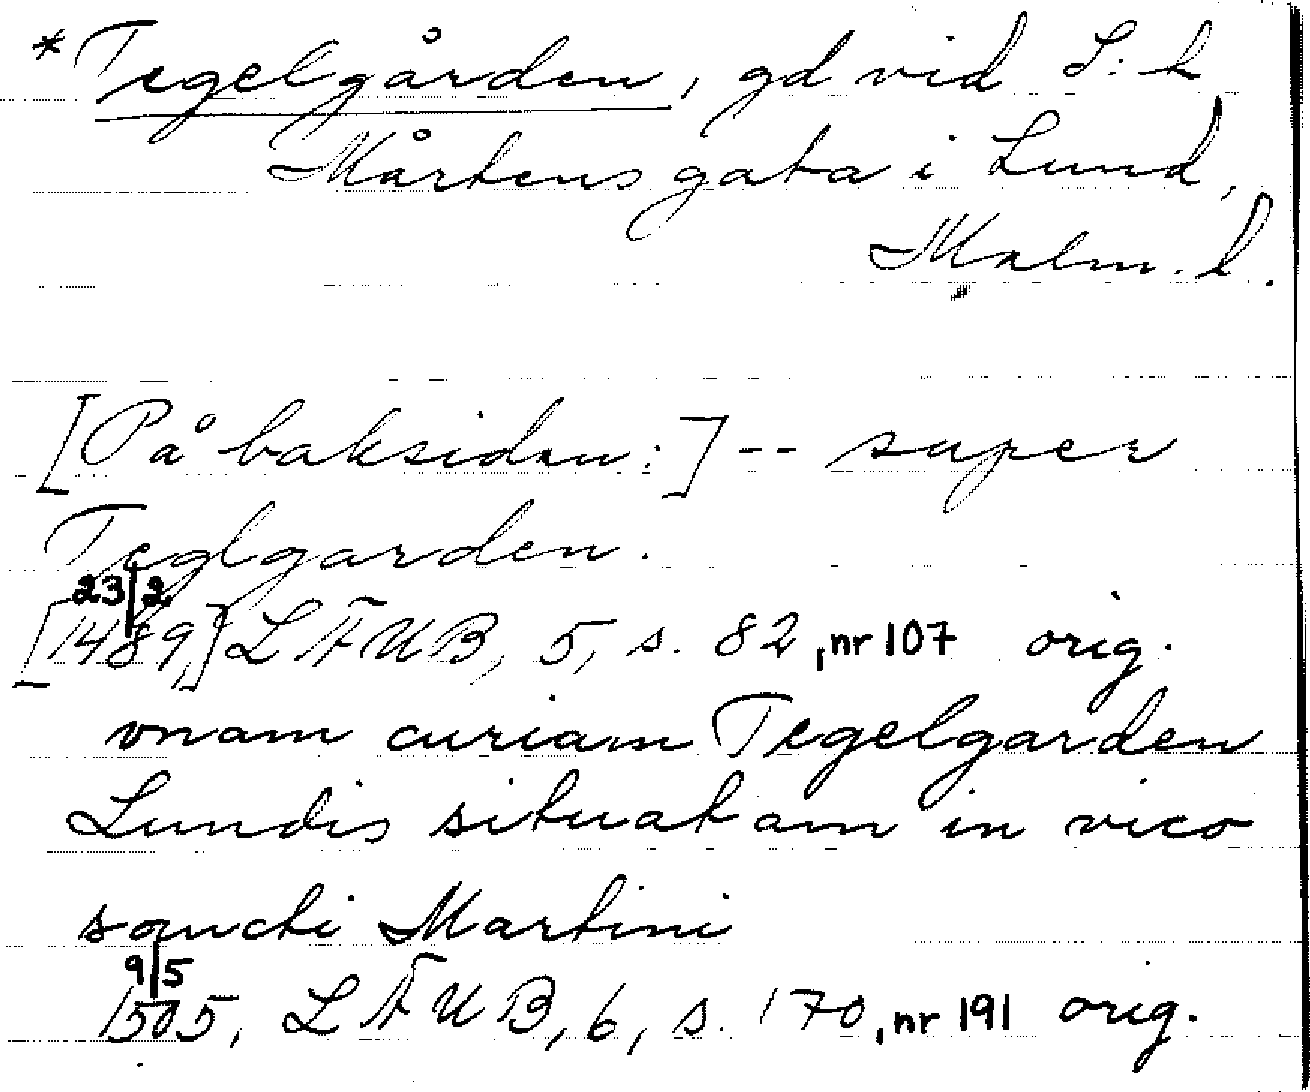 *Tegelgården, gd vid S:t
Mårtens gata i Lund,
Malm. l.
[På baksidan:] -- super
Teglgarden.
23/2
[1489] LÄUB, 5, s. 82, nr 107 orig.
vnam curiam Tegelgarden
Lundis situatam in vico
sancti Martini
9/5
1505, LÄUB, 6, s. 170, nr 191 orig.